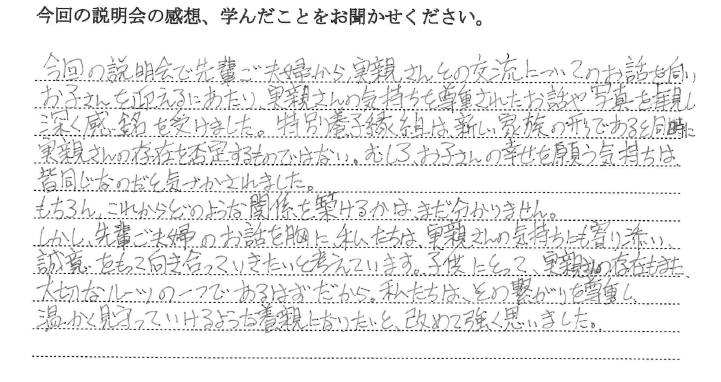 今回の説明会の感想、学んだことをお聞かせください。
今回の説明会で先輩ご夫婦から、実親さんとの交流についてのお話を伺い
お子さんを迎えるにあたり、実親さんの気持ちを尊重されたお話や写真を拝見し
深く感銘を受けました。特別養子縁組は、新しい家族の形であると同時に
実親さんの存在を否定するものではない。むしろ、お子さんの幸せを願う気持ちは、
皆同じなのだと気づかされました。
もちろん、これからどのような関係を築けるかは、まだ分かりません。
しかし、先輩ご夫婦のお話を胸に、私たちは、実親さんの気持ちにも寄り添い、
誠意をもって向き合っていきたいと考えています。子供にとって、実親さんの存在もまた、
大切なルーツの一つであるはずだから。私たちは、その繋がりを尊重し、
温かく見守っていけるような養親になりたいと、改めて強く思いました。